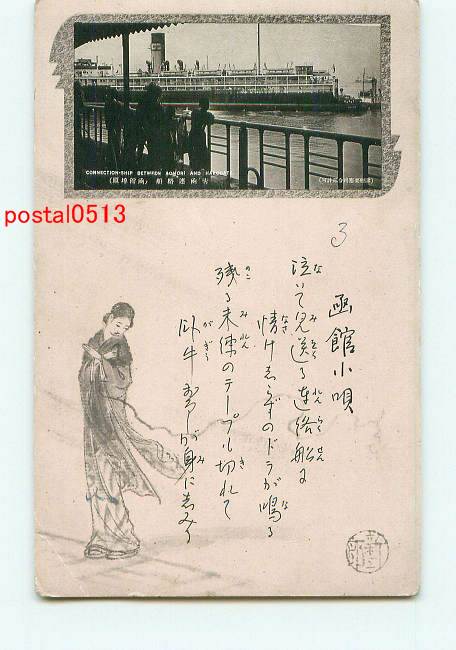 CONNECTION-SHIP BETWEEN AOMORI AND HAKODATE
(函館埠頭) 船絡連函青
postal0513
3
函館小唄
泣いて見送る連絡船に
情け知らずのドラが鳴る
残る未練のテープも切れて
臥牛おろしが身にしみる